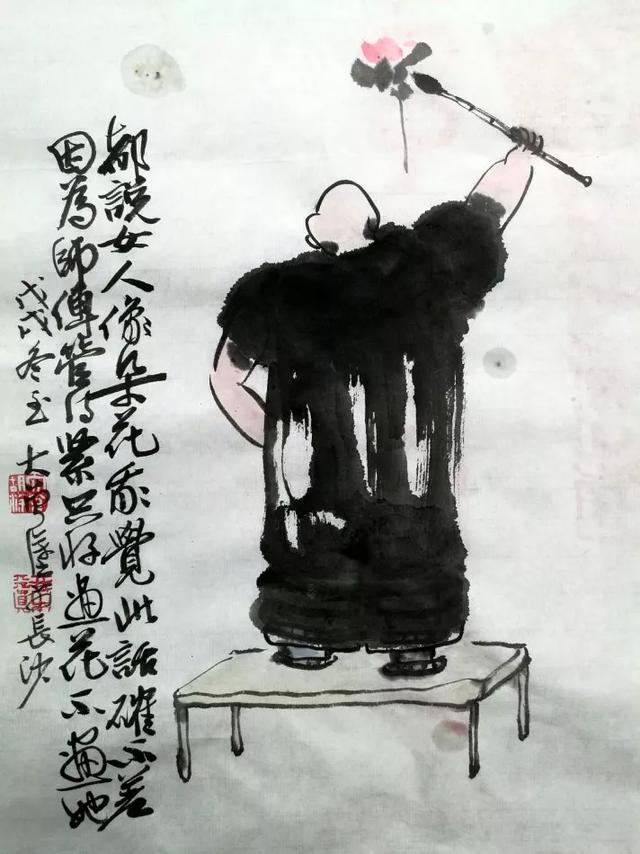 都說女人像朵花我覺此話確不差
因為師傅管得緊只好画花不画她
戊戌冬至大長沙